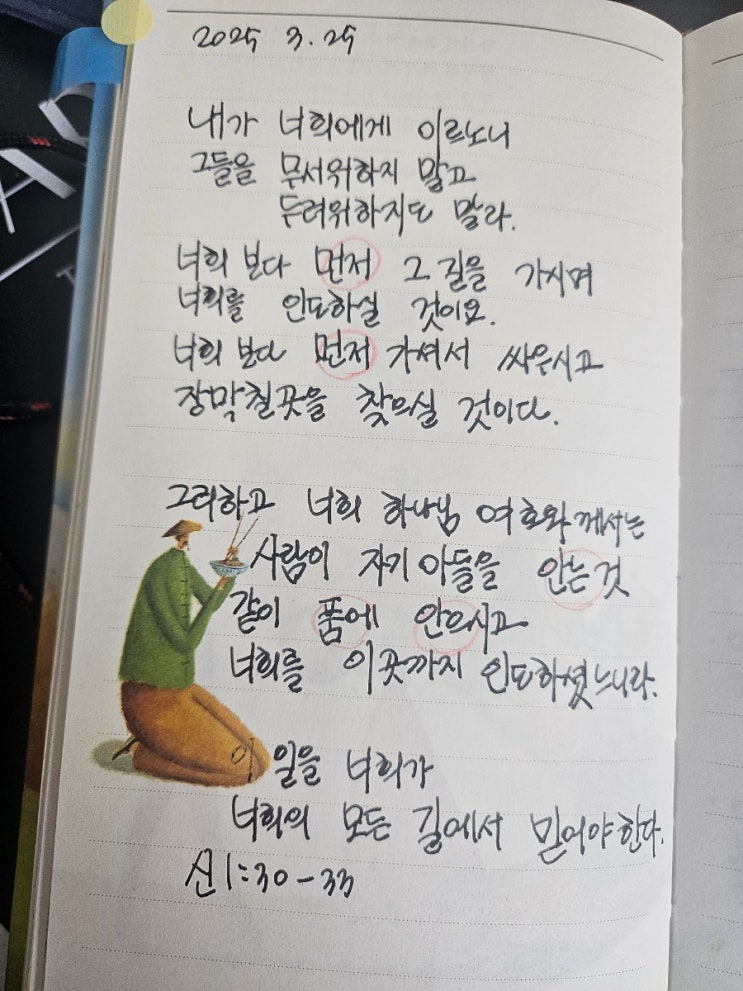 2025 3.25
내가 너희에게 이르노니
그들을 무서워하지 말고
두려워하지도 말라.
너희 보다 먼저 그 길을 가시며
너희를 인도하실 것이요.
너희 보다 먼저 가셔서 싸우시고
장막칠곳을 찾으실 것이다.
그리하고 너희 하나님 여호와께서는
사람이 자기 아들을 안는것
같이 품에 안으시고
너희를 이곳까지 인도하셨느니라.
이 일을 너희가
너희의 모든 길에서 믿어야한다.
신1:30-33